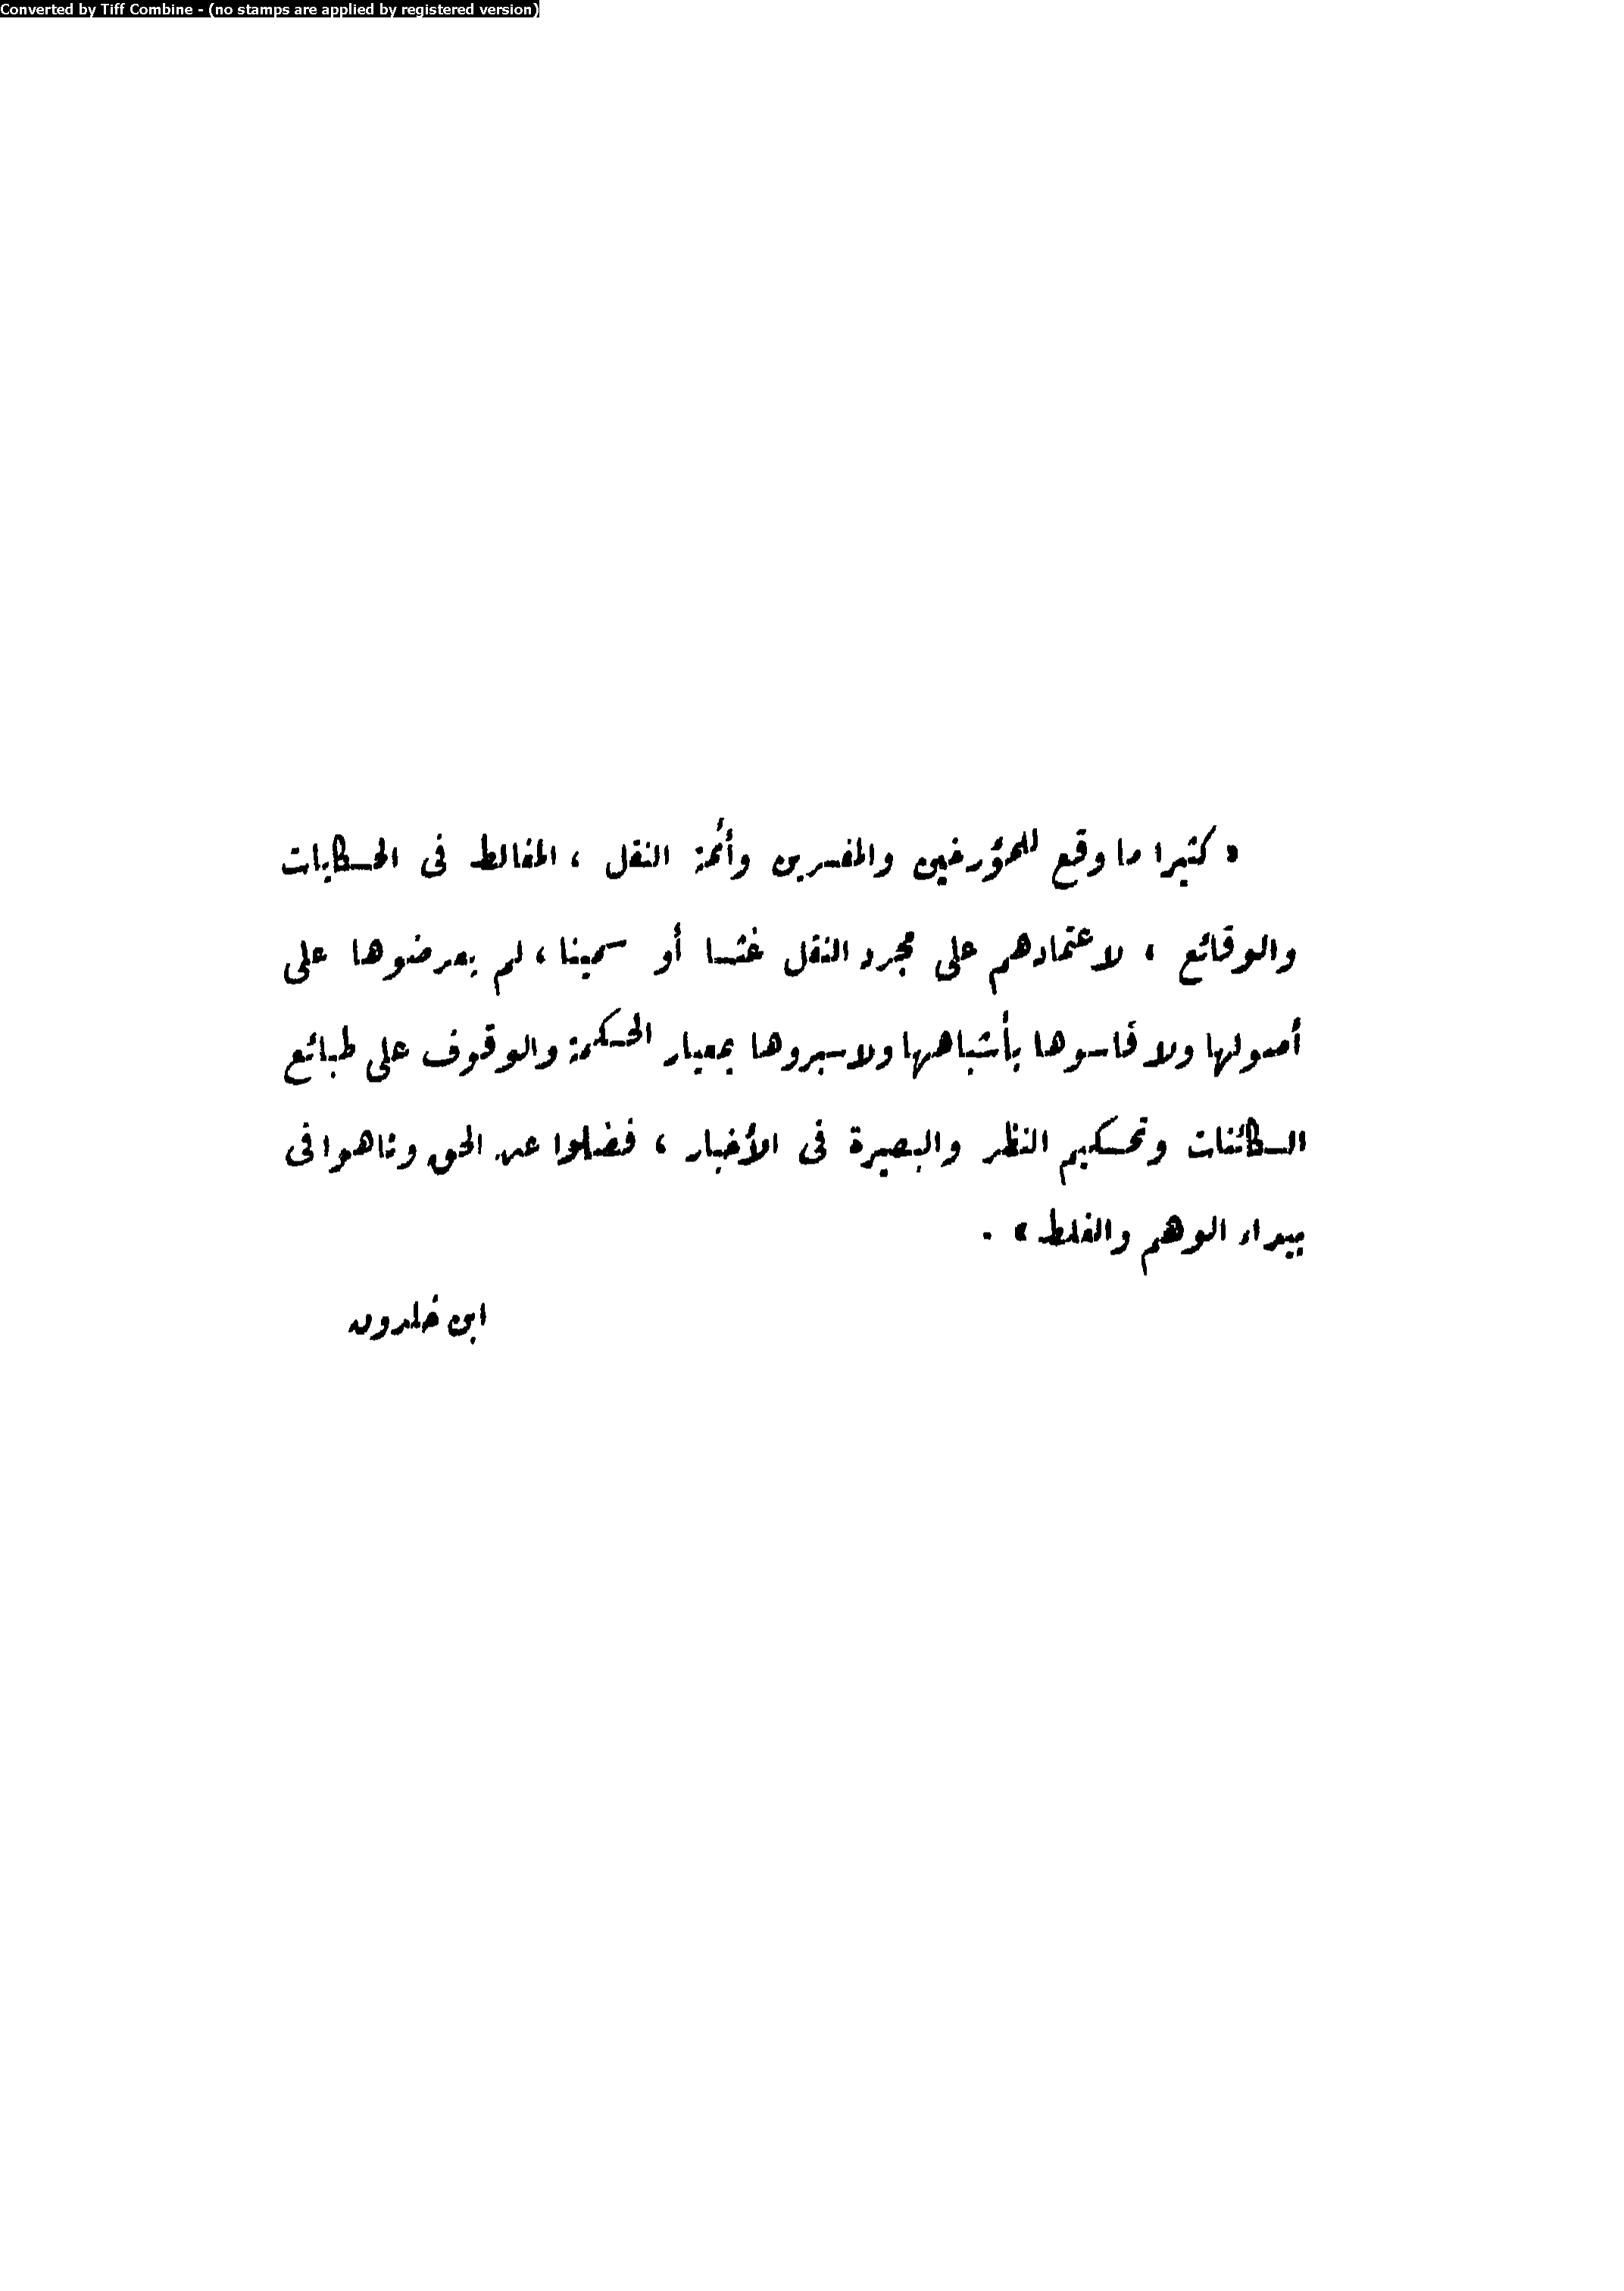 Converted by Tiff Combine - (no stamps are applied by registered version)
« كثيرا ما وقع للمؤرخين والمفسرين وأئمة النقل ، المغالط فى الحكايات
والوقائع ، لاعتمادهم على مجرد النقل غثا أو سمينا ، لم يعرضوها على
أصولها ولا قاسوها بأشباهها ولا سبروها بمعيار الحكمة والوقوف على طبائع
الكائنات وتحكيم النظر والبصيرة فى الأخبار ، فضلوا عن الحق وتاهوا فى
بيداء الوهم والغلط » .
ابن خلدون